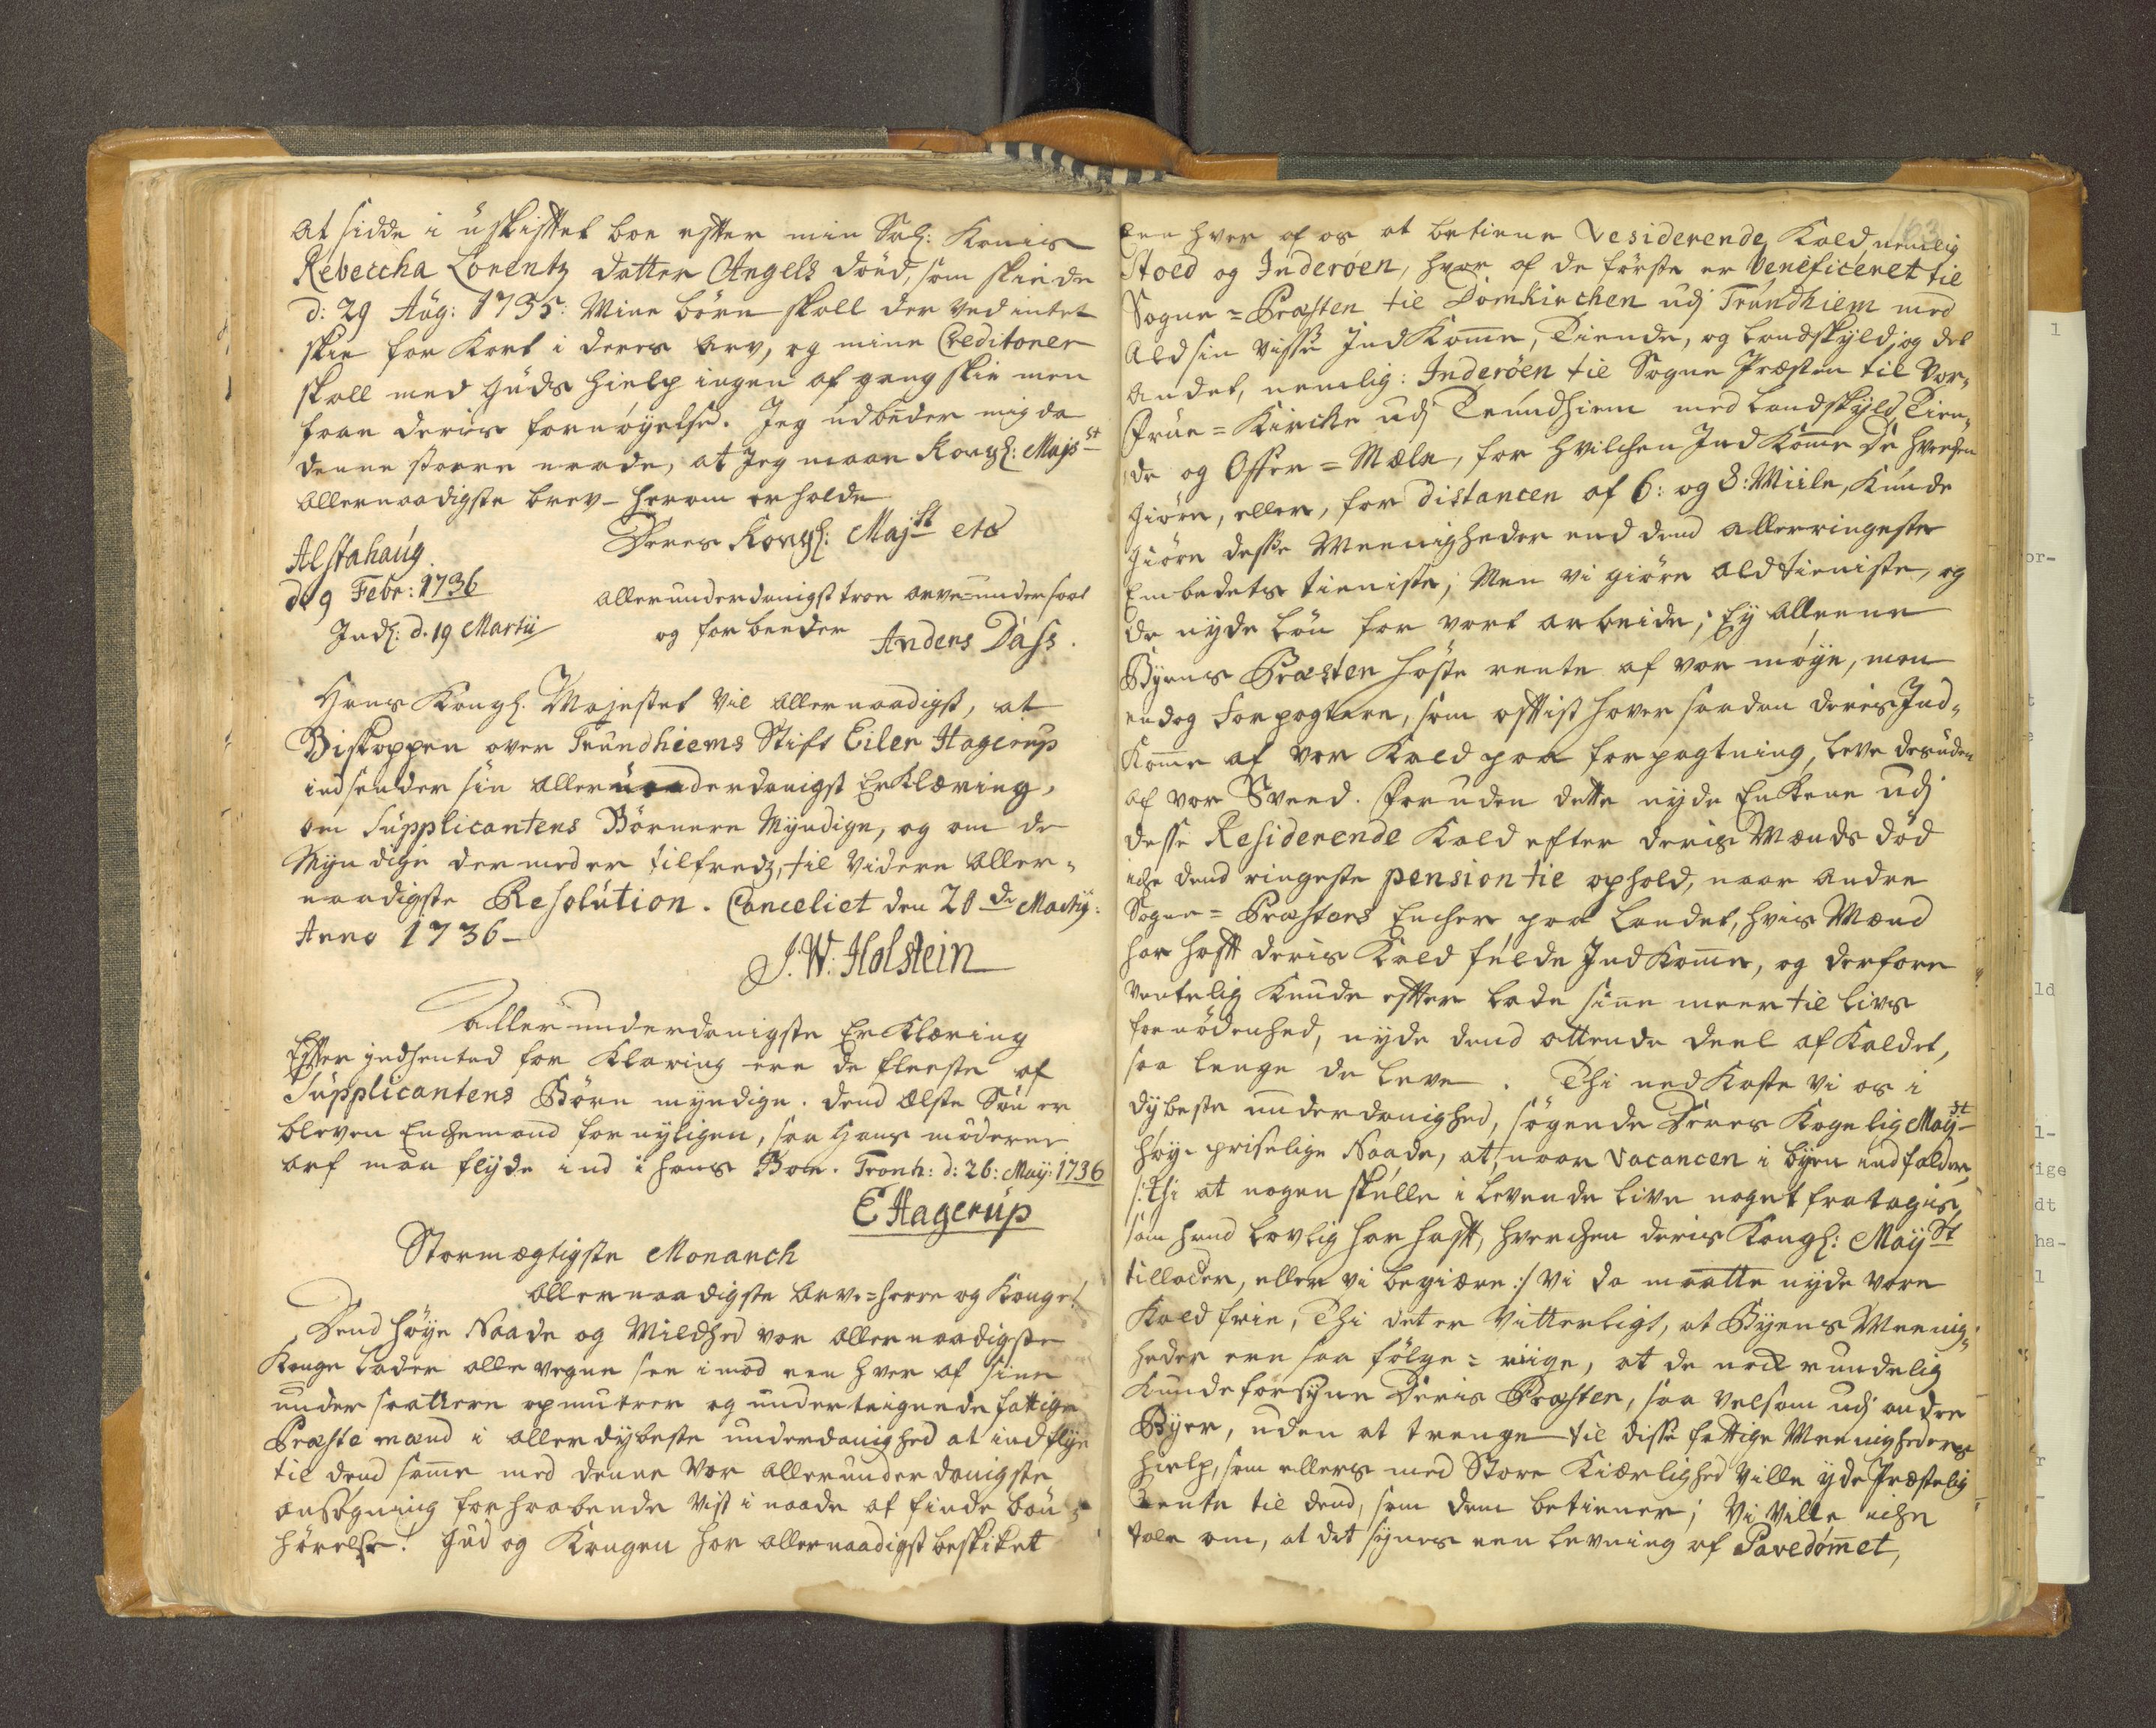 at sidde i uskifftet boe effter min Sal: Konis
Rebeccha Lorentz datter Angels Död, som skiede
d: 29 Aug: 1735. Mine börn skall der ved intet
skie for kort i deres Arv, og mine Creditorer
skall med Guds hielp ingen afgang skie men
faae deris fornøyelse. Jeg udbeder mig da
denne store naade, at Jeg maae Kongl: Majs:st
allernaadigste brev herom erholde
Deres Kongl: Majst etc
Alstahaug
d 9 Febr: 1736
allerunderdanigst troe arve=undersaat
Indl: d. 19 Martii
og forbeeder Anders Dass.
Hans Kongl. Majestet vil allernaadigst, at
Biskoppen over Trundhiems Stift Eiler Hagerup
indsender sin allerunderdanigst Erklæring,
om Supplicantens Börn ere Myndige, og om de
Myndige dermed er tilfredz, til videre aller=
naadigste Resolution. Canceliet den 20de Martij:
Anno 1736
J. W. Holstein
Allerunderdanigste Erklæring
Effter indhented forklaring ere de fleeste af
Supplicantens Börn myndige. Dend ælste Sön er
bleven Enchemand for nyligen, saa Hans möderne
arf maa flyde ind i hans Boe. Tronh: d: 26: Maij: 1736
E Hagerup
Stormægtigste Monarch
allernaadigste Arve=Herre og Konge!
Dend höye Naade og Mildhed vor allernaadigste
Konge lader alle vegne see imod een hver af sine
undersaattere opmuntrer og undertegnede fattige
Præste mænd i aller dybeste underdanighed at indflye
til dend samme med denne vor allerunderdanigste
ansøgning forhaabende vist i naade at finde bön=
hörelse! Gud og Kongen har allernaadigst beskiket
163
een hver af os at betiene Residerende Kald, nemlig
Stoed og Inderöen, hvor af de første er beneficeret til
Sogne=Præsten til Domkirchen udj Trundhiem med
ald sin visse Indkomme, Tiende, og landskyld, og det
andet, nemlig: Inderöen til Sogne Præsten til Vor=
Frue=Kircke udj Trundhiem med Landskyld, Tien=
de og Offer=Mæle, for hvilchen Indkomme de hverchen
giöre, eller, for distancen af 6: og 8: Miile, kunde
giöre desse Meenigheder end dend allerringeste
Embedets tieniste; Men vi giöre ald tieniste, og
de nyde løn for vort arbeide; Ey alleene
Byens Præster höste rente af vor møye, men
endog Forpagtere, som offtist haver saadan deris Ind=
komme af vor Kald paa forpagtning, leve desuden
af vor Sveed. Foruden dette nyde Enkene udj
desse Residerende Kald efter deris Mænds död
iche dend ringeste pension til ophold, naar andre
Sogne=Præsters Encher paa Landet, hvis Mænd
har hafft deris Kald fulde Indkomme, og derfore
ventelig kunde effterlade sine meer til livs
fornödenhed, nyde dend ottende deel af Kaldet,
saa lenge de leve. Thi nedkaste vi os i
dybeste underdanighed, søgende Deres Kongelig Mayst
höy=priselige Naade, at, naar vacancen i byen indfalder,
/: Thi at nogen skulle i levende live noget fratages,
som hand lovlig har hafft, hverchen deris Kongl: Mayst
tillader, eller vi begiære :/ vi da maatte nyde vore
Kald frie, Thi det er vitterligt, at Byens Meenig=
heder ere saa følge=riige, at de nok rundelig
kunde forsyne deris Præster, saa vel som udj andre
Byer, uden at trenge til disse fattige Meenigheders
hielp, som ellers med Store Kiærlighed ville yde Præstelig
Rente til dend, som dem betiener; Vi ville iche
tale om, at det synes een levning af Pavedömmet,